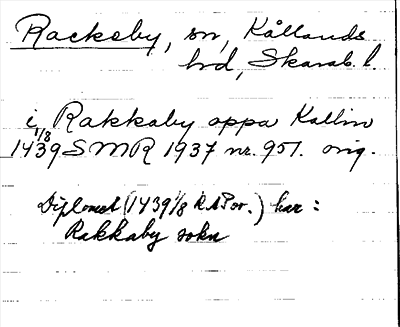 Racksby, sn, Kållands
hd, Skarab. l.
i Rakkaby oppa Kallin
1/8
1439 SMR 1937 nr. 951. orig.
Diplomet (1439 1/8 RAP or.) har:
Rakkaby sokn